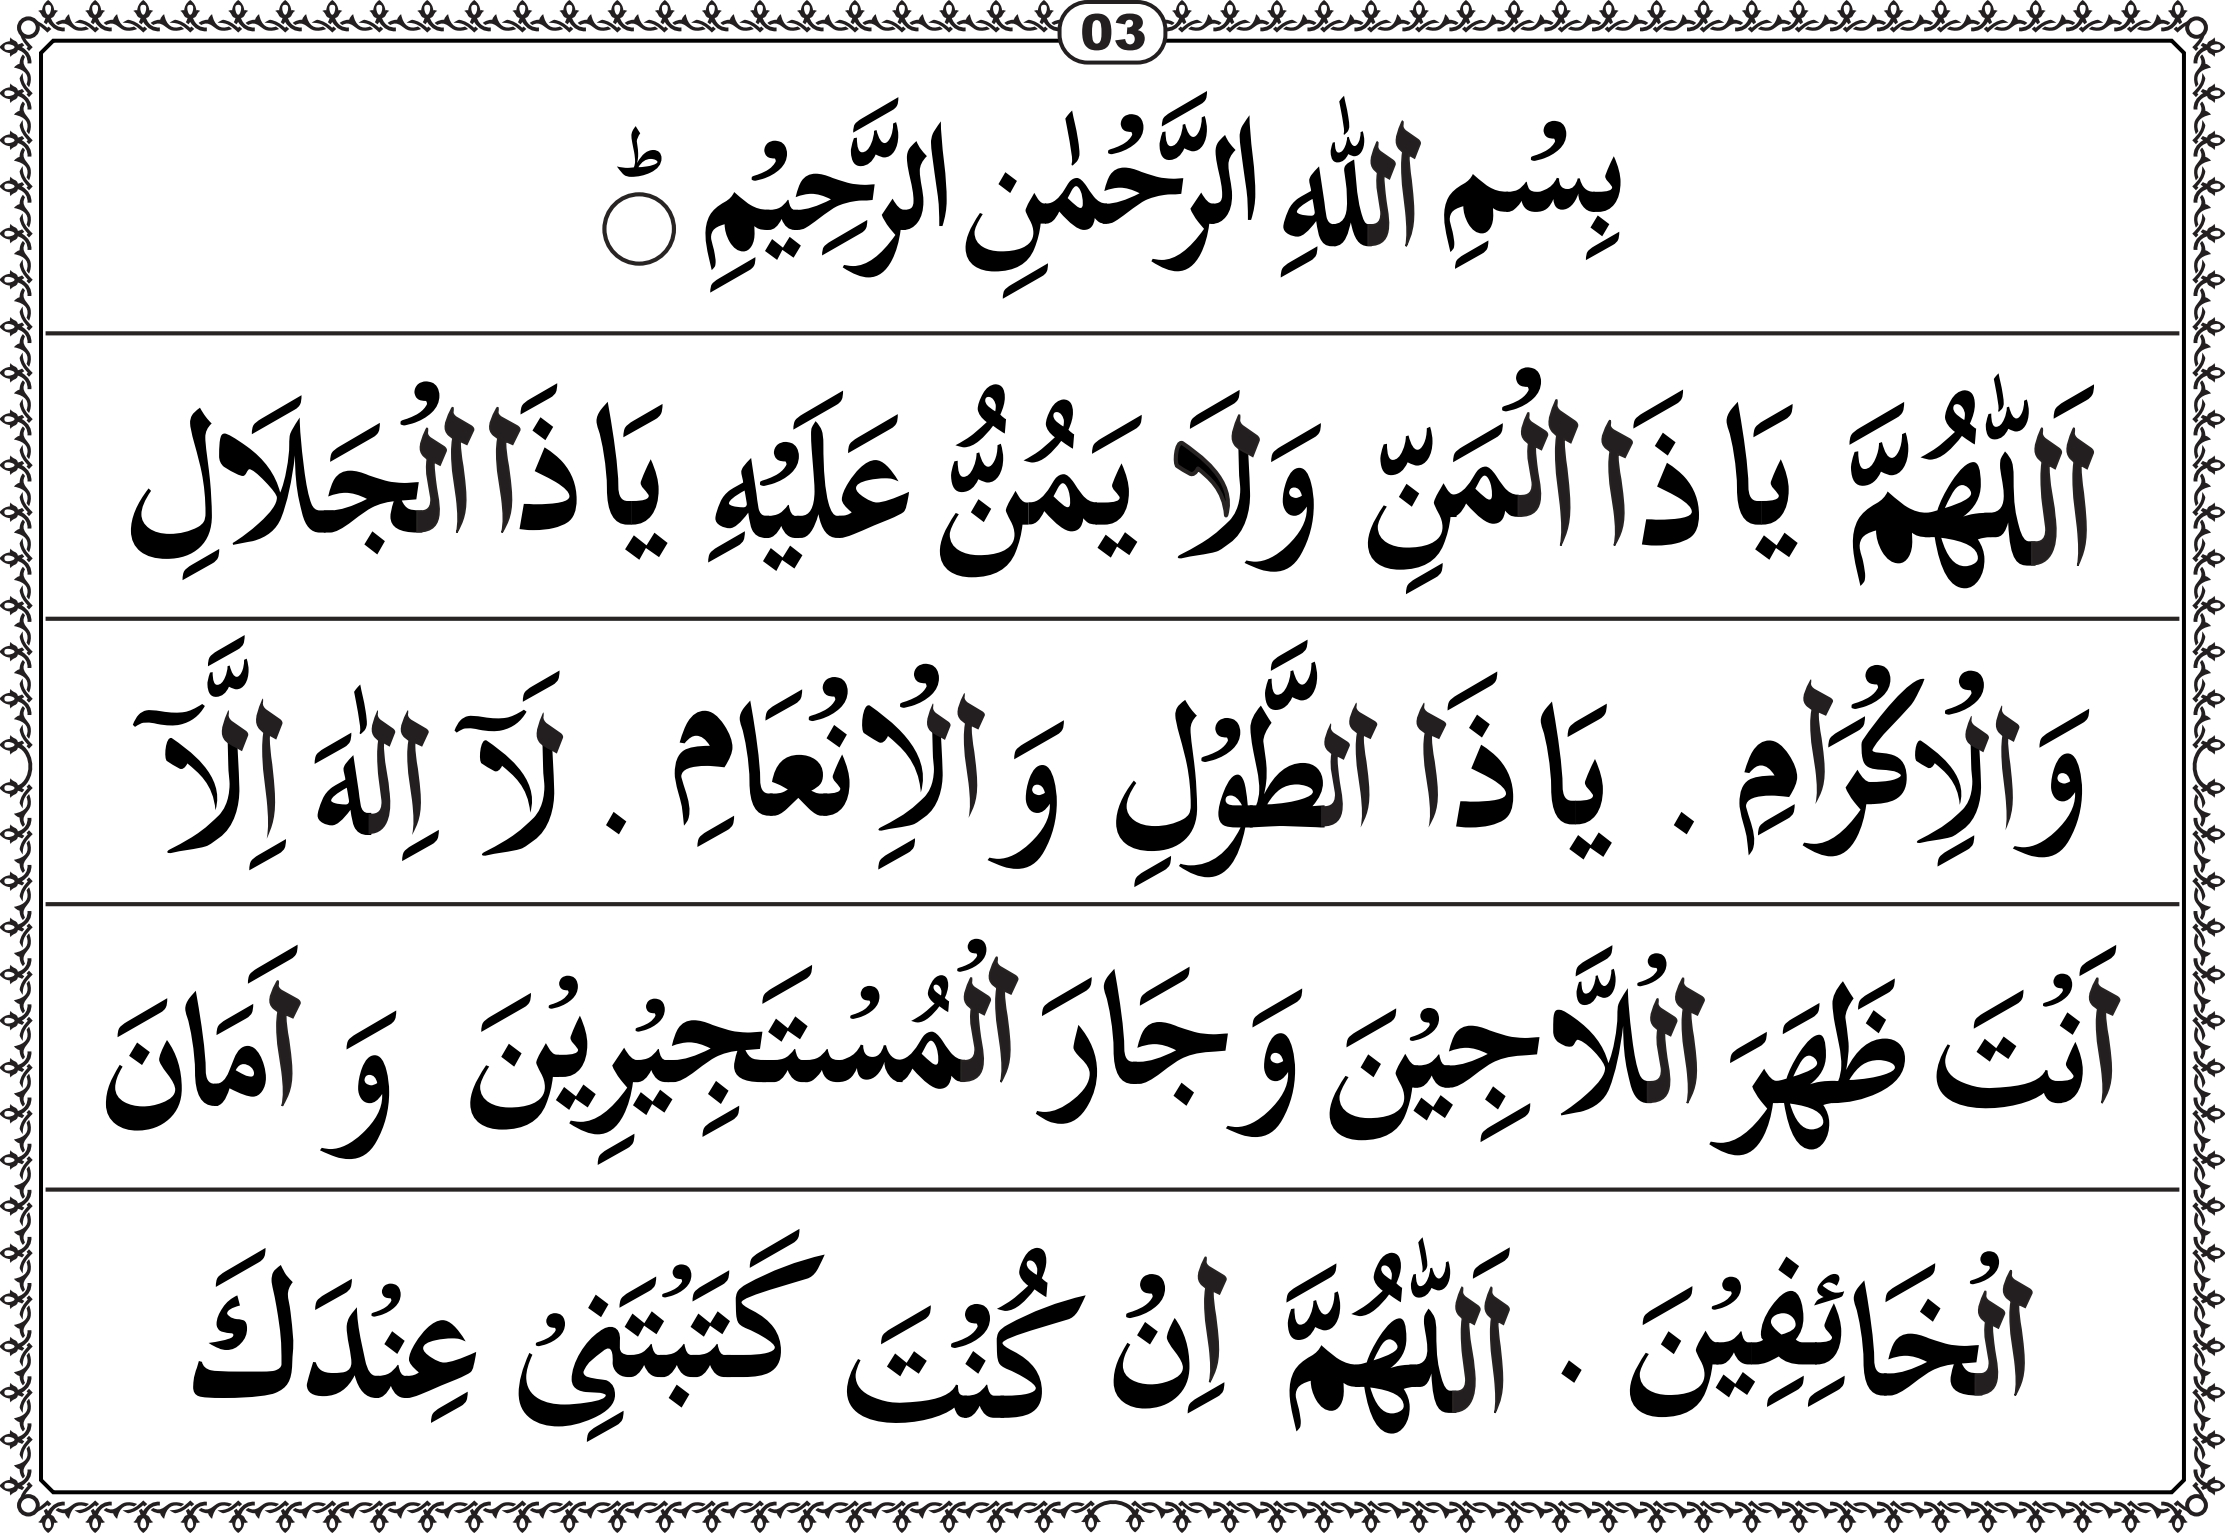 03
بِسْمِ اللّٰهِ الرَّحْمٰنِ الرَّحِيْمِ ○ؕ
اَللّٰهُمَّ يَا ذَا الْمَنِّ وَلَا يَمُنُّ عَلَيْهِ يَا ذَا الْجَلَالِ
وَالْاِكْرَامِ . يَا ذَا الطَّوْلِ وَ الْاِنْعَامِ . لَآ اِلٰهَ اِلَّآ
اَنْتَ ظَهَرَ الْلَّاجِيْنَ وَ جَارَ الْمُسْتَجِيْرِيْنَ وَ اَمَانَ
الْخَائِفِيْنَ . اَللّٰهُمَّ اِنْ كُنْتَ كَتَبْتَنِيْ عِنْدَكَ